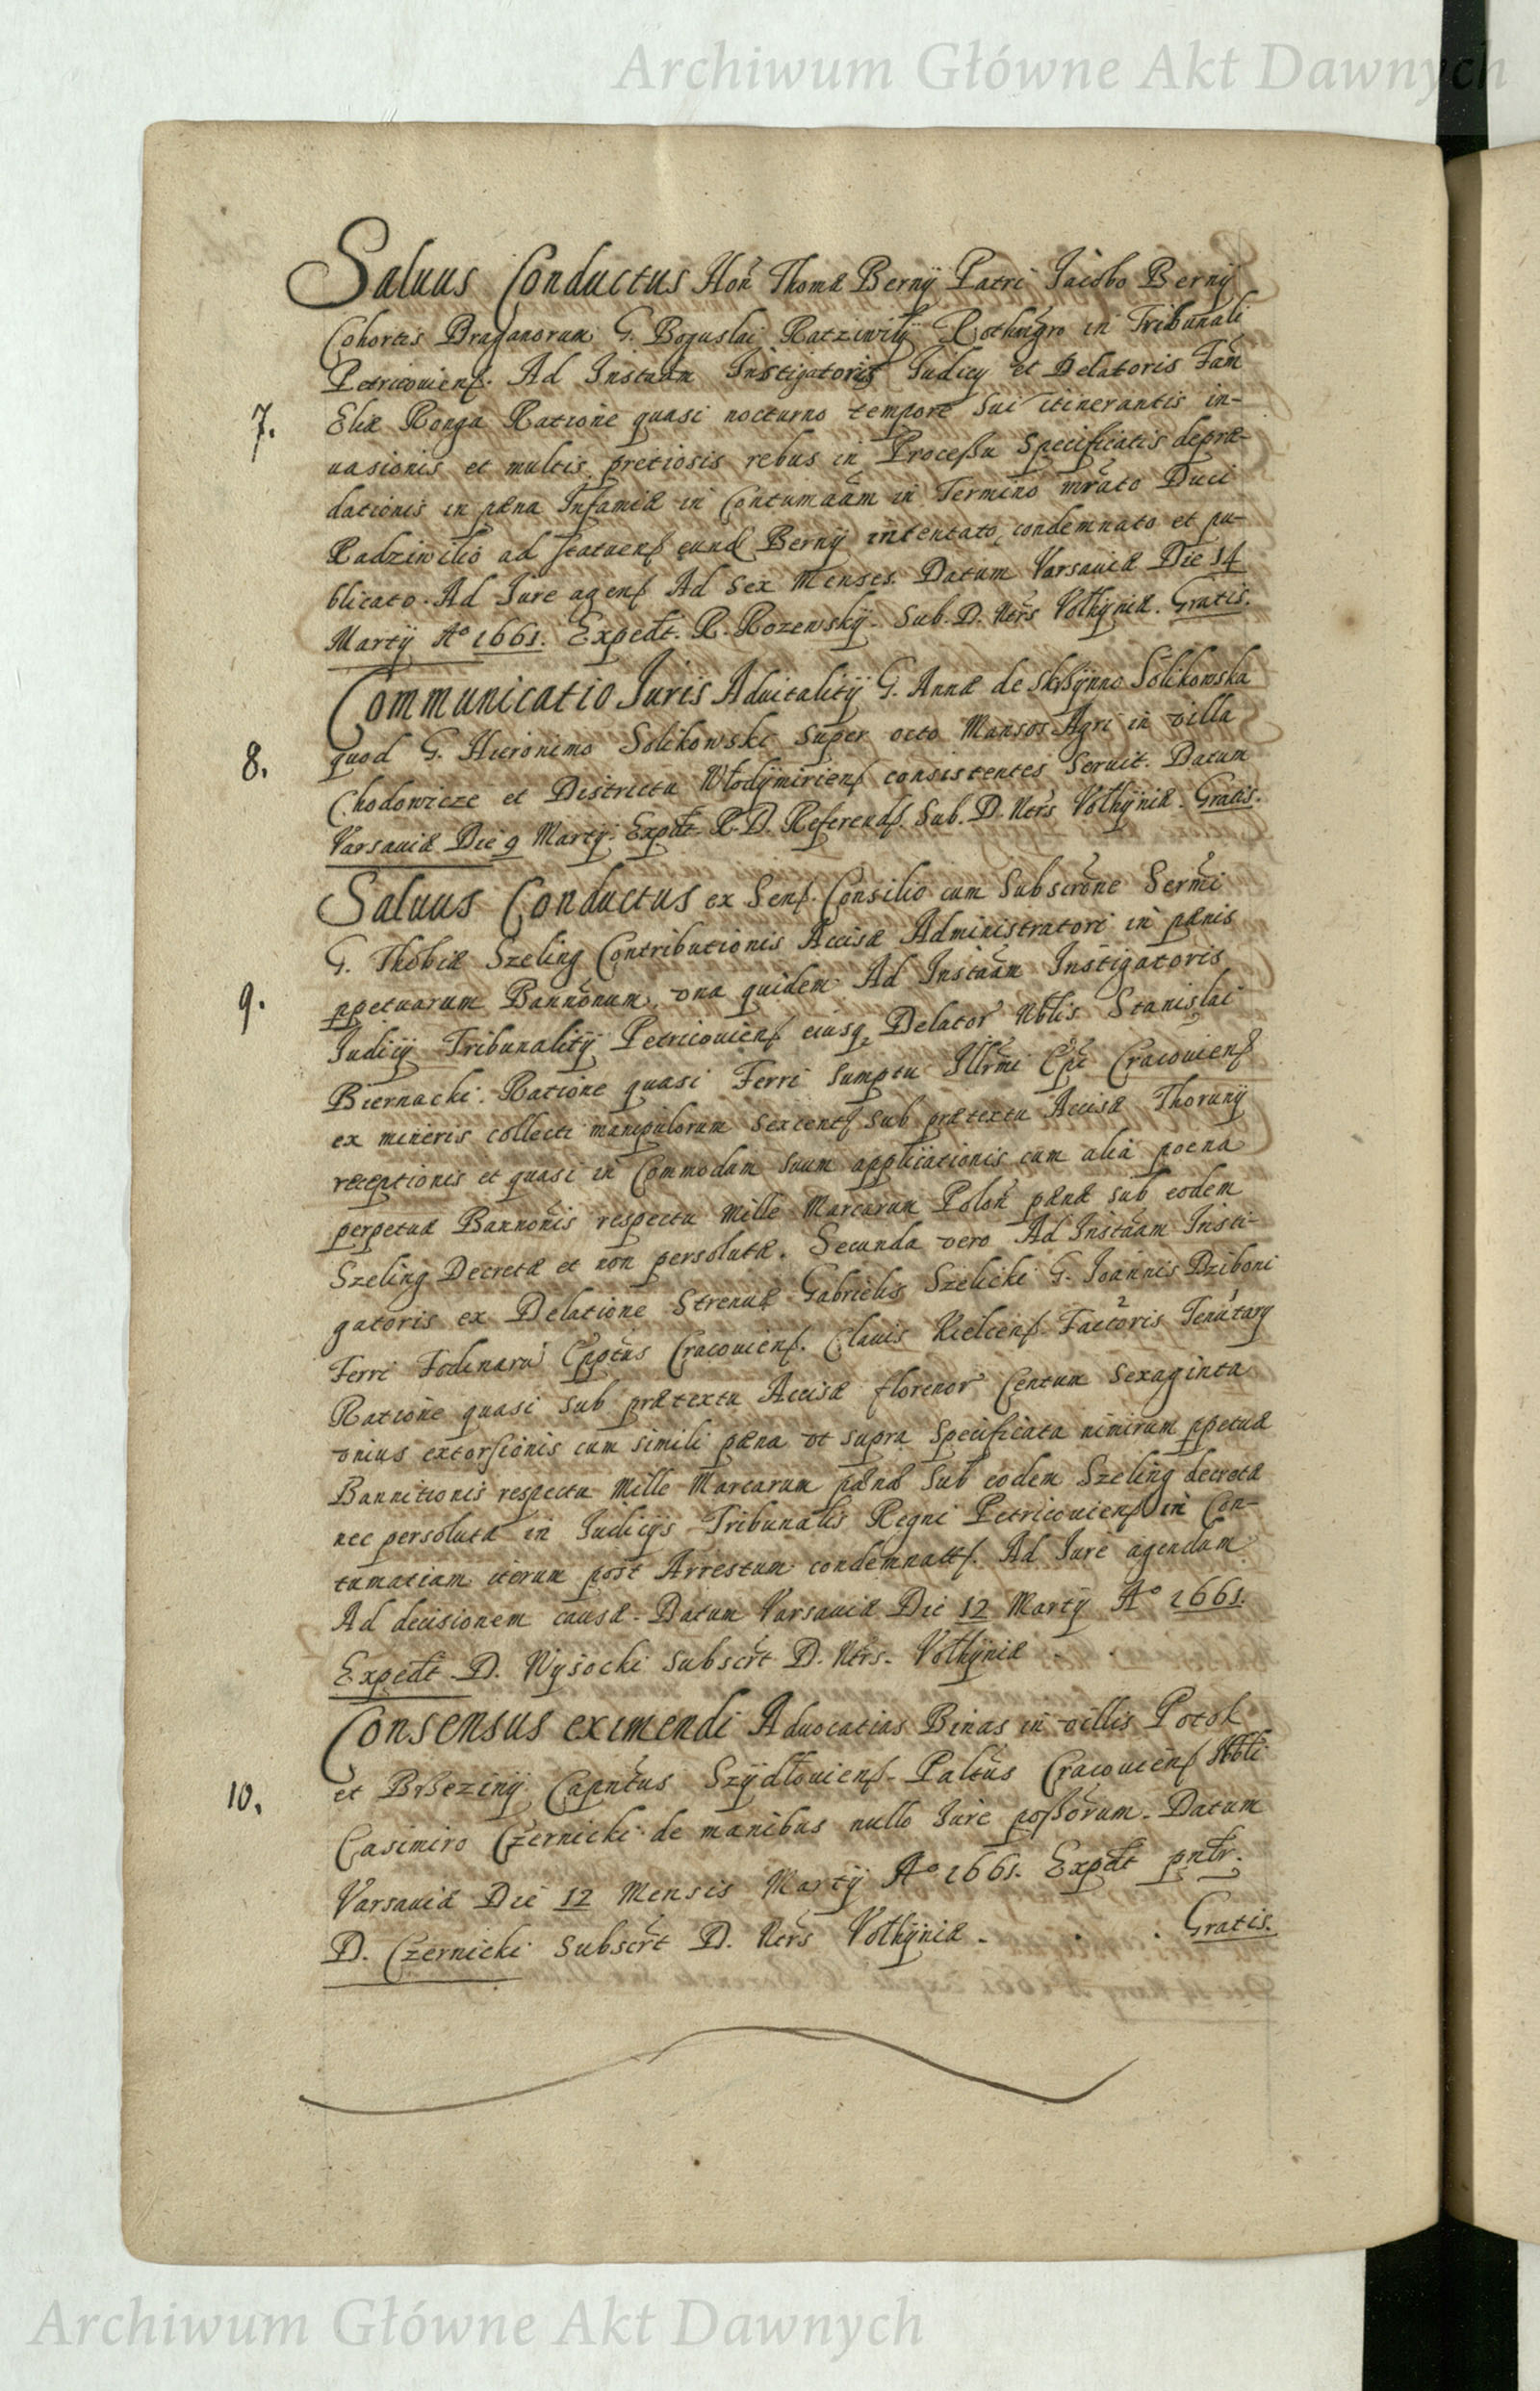 Archiwum Główne Akt Dawnych
Saluus Conductus Hon Thomæ Bernÿ Patri Jacobo Bernÿ
Cohortis Draganorum G. Boguslai Ratziwilÿ Rothmgro in Tribunali
Petricouiens. Ad Instam Instigatoris Judicÿ et Delatoris Fam
7. Eliæ Ronga Ratione quasi nocturno tempore sui itinerantis in-
uasionis et multis pretiosis rebus in Processu Specificatis depræ-
dationis in pæna Infamiæ in Contumaam in Termino mrato Duci
Radziwilio ad statuens eund Bernÿ intentato, condemnato et pu-
blicato. Ad Jure agens Ad Sex Menses. Datum Varsauiæ Die 14
Martÿ Aº 1661. Expedt. R. Rozewskÿ. Sub. D. Ners Volhÿniæ. Gratis.
Communicatio Juris Aduitalitÿ G. Annæ de Skrßÿnno Solikowska
8. quod G. Hieronimo Solikowski Super octo Mansos Agri in villa
Chodowieze et Districtu Włodÿmiriens consistentes Seruit. Datum
Varsauiæ Die 9 Martÿ. Expdt. R. D. Referends. Sub. D. Ners Volhÿniæ. Gratis.
Saluus Conductus ex Sens. Consilio cum Subscrone Sermi
G. Thobiæ Szeling Contributionis Accisæ Administratori in pænis
9. ppetuarum Bannonum, vna quidem Ad Instam Instigatoris
Judicÿ Tribunalitÿ Petricouiens eiusq Delator Nblis Stanislai
Biernacki. Ratione quasi Ferri Sumptu Illrmi Epi Cracouiens
ex mineris collecti manipulorum Sexcents sub prætextu Accisæ Thorunÿ
receptionis et quasi in Commodum suum applicationis cum alia poena
perpetuæ Bannonis respectu Mille Marcarum Polon pænæ sub eodem
Szeling Decretæ et non persolutæ. Secunda vero Ad Instaam Insti-
gatoris ex Delatione Strenui Gabrielis Szelicki G. Joannis Dziboni
Ferri Fodinaru Epptus Cracouiens. Clauis Kielcens. Factoris Tenutary
Ratione quasi sub prætextu Accisæ florenor Centum Sexaginta
vnius extorsionis cum simili pæna vt supra Specificata nimirum ppetuæ
Bannitionis respectu Mille Marcarum pænæ sub eodem Szeling decretæ
nec persolutæ in Judicÿs Tribunalis Regni Petricouiens in Con-
tumatiam iterum post Arrestum condemnatts. Ad Jure agendum
Ad decisionem causæ. Datum Varsauiæ Die 12 Martÿ Aº 1661.
Expedt. D. Wÿsocki Subscrt D. Ners. Volhÿniæ
Consensus eximendi Aduocatias Binas in villis Potok
10. et Brßezinÿ Capntus Szÿdłouiens. Paltus Cracouiens Nbli
Casimiro Czernicki de manibus nullo Jure possorum. Datum
Varsauiæ Die 12 Mensis Martÿ Aº 1661. Expdt pntr.
D. Czernicki Subscrt D. Ners Volhÿniæ. Gratis.
Archiwum Główne Akt Dawnych